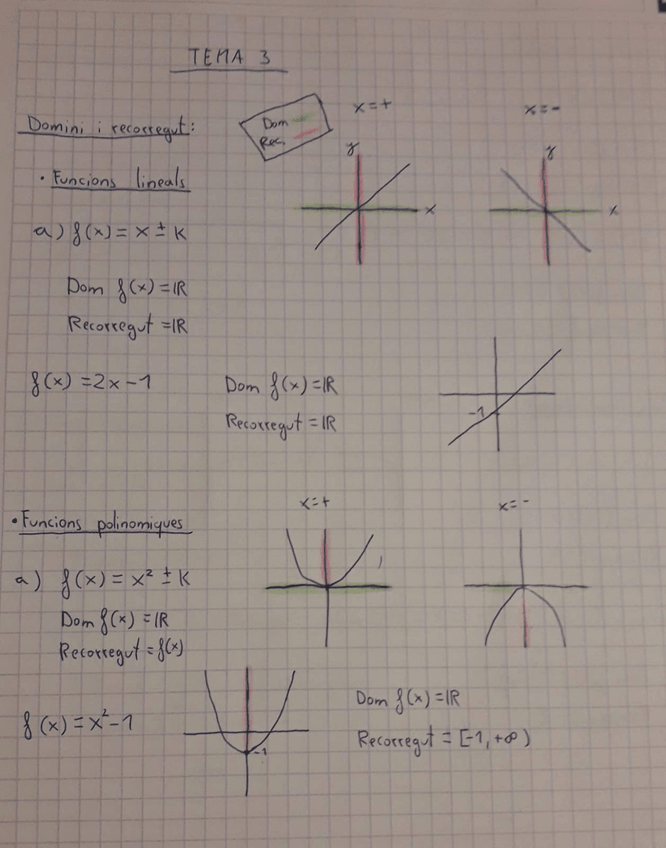 TEMA 3
Domini i recorregut:
Dom
Rec.
x=+
x=-
y
x
y
x
• Funcions lineals
a) f(x) = x ± K
Dom f(x) = IR
Recorregut = IR
f(x) = 2x-1
Dom f(x) = IR
Recorregut = IR
-1
• Funcions polinomiques
x=+
x=-
a) f(x) = x² ± K
Dom f(x) = IR
Recorregut = f(x)
f(x) = x²-1
-1
Dom f(x) = IR
Recorregut = [-1, +∞)